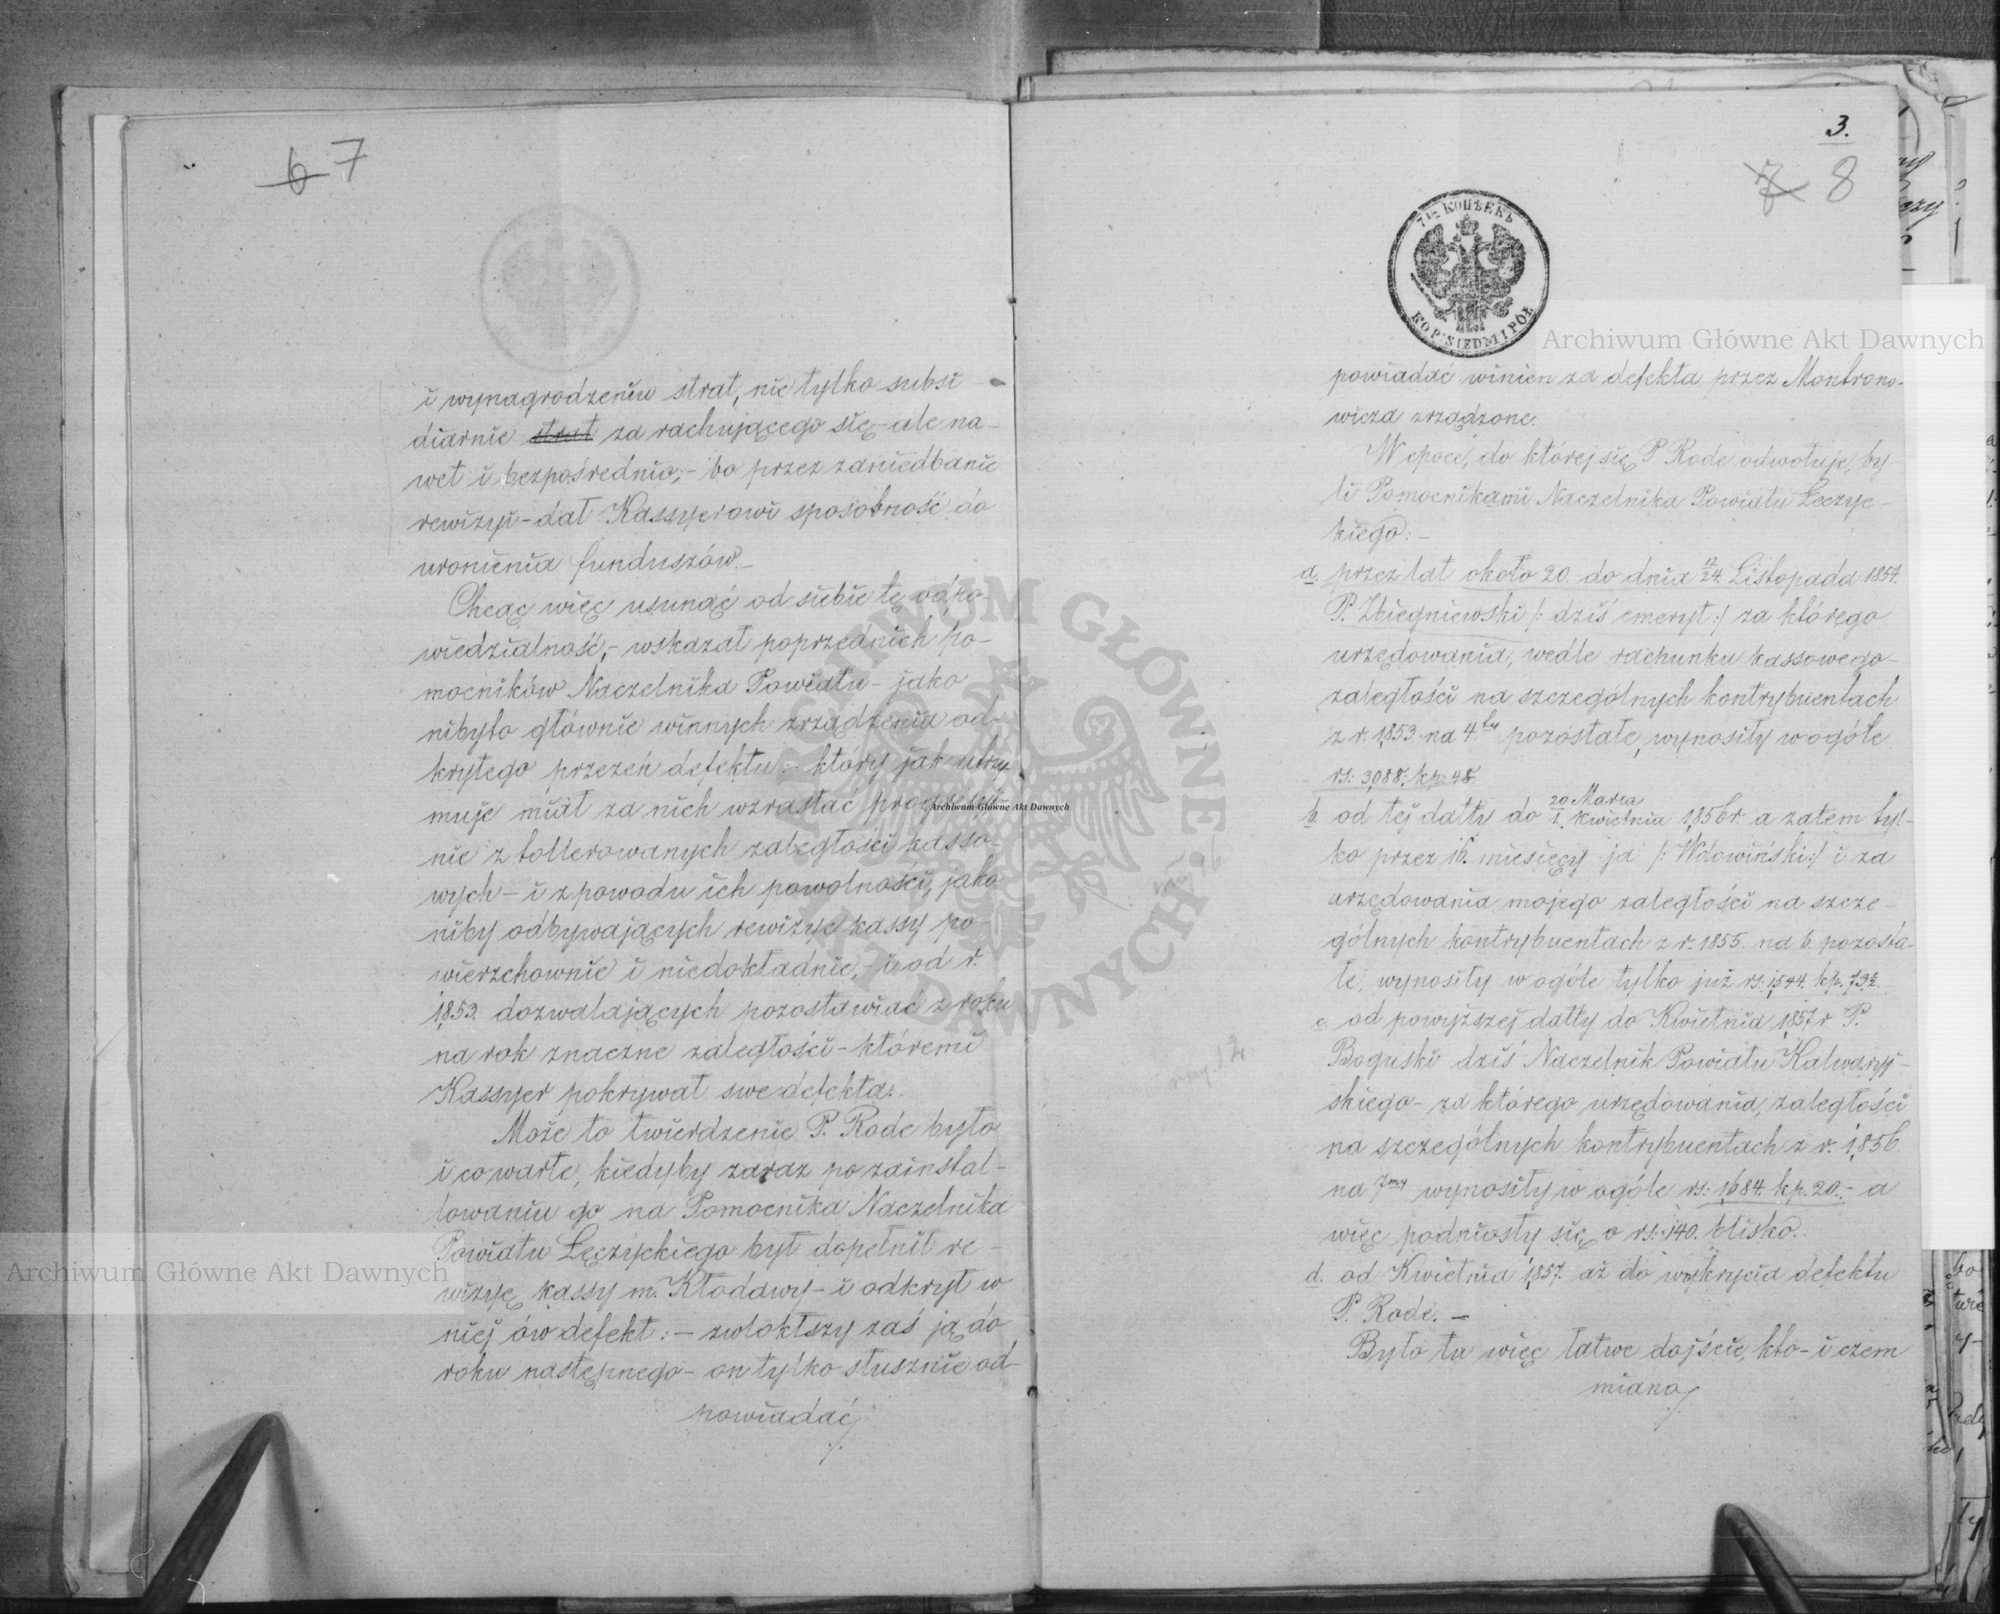 6 7
i wynagrodzeniu strat, nie tylko subsi-
diarnie strat za rachującego się - ale na-
wet i bezpośrednio; - bo przez zaniedbanie
rewizyi - dał Kassyerowi sposobność do
uronienia funduszów. -
Chcąc więc usunąć od siebie tę odpo-
wiedzialność, - wskazał poprzednich po-
mocników Naczelnika Powiatu - jako
nibyto głównie winnych zrządzenia od-
krytego przezeń defektu: - który jak utrzy
muje miał za nich wzrastać progressyj-
nie z tollerowanych zaległości kasso-
wych - i z powodu ich powolności, jako
niby odbywających rewizye kassy po-
wierzchownie i niedokładnie, - i od r.
1853. dozwalających pozostawiać z roku
na rok znaczne zaległości - któremi
Kassyer pokrywał swe defekta. -
Może to twierdzenie P. Rode było
i co warte, kiedyby zaraz po zainstal-
lowaniu go na Pomocnika Naczelnika
Powiatu Łęczyckiego był dopełnił re-
wizyę kassy m. Kłodawy - i odkrył w
niej ów defekt: - zwlókłszy zaś ją do
roku następnego - on tylko słusznie od-
powiadać
3.
7 8
7½ КОПѢЕКЪ
KOP. SIEDM I PÓŁ
powiadać winien za defekta przez Montrono-
wicza zrządzone.
W epoce, do której się P Rode odwołuje, by-
li Pomocnikami Naczelnika Powiatu Łęczyc-
kiego: -
a. przez lat około 20. do dnia 12/24. Listopada 1854.
P. Zbiegniewski /: dziś emeryt :/ za którego
urzędowania, wedle rachunku kassowego -
zaległości na szczególnych kontrybuentach
z r. 1853 na 4ty pozostałe, wynosiły w ogóle
rs: 3,088. kp: 48
b od tej datty do 20 Marca / 1. Kwietnia 1856 r. a zatem tyl-
ko przez 16. miesięcy ja /: Wdowiński :/ i za
urzędowania mojego zaległości na szcze-
gólnych kontrybuentach z r. 1855. na 6. pozosta-
łe, wynosiły w ogóle tylko już rs. 1,544. kp. 73½.
c. od powyższej datty do Kwietnia 1857 r P.
Boguski dziś Naczelnik Powiatu Kalwaryj-
skiego - za którego urzędowania, zaległości
na szczególnych kontrybuentach z r. 1,856
na 7my wynosiły w ogóle rs: 1,684. kp. 20. - a
więc podniosły się o rs. 140. blisko.
d. od Kwietnia 1,857. aż do wykrycia defektu
P. Rode. -
Było tu więc łatwe dojście, kto - i czem
miano
Archiwum Główne Akt Dawnych
Archiwum Główne Akt Dawnych
Archiwum Główne Akt Dawnych
ARCHIWUM GŁÓWNE AKT DAWNYCH